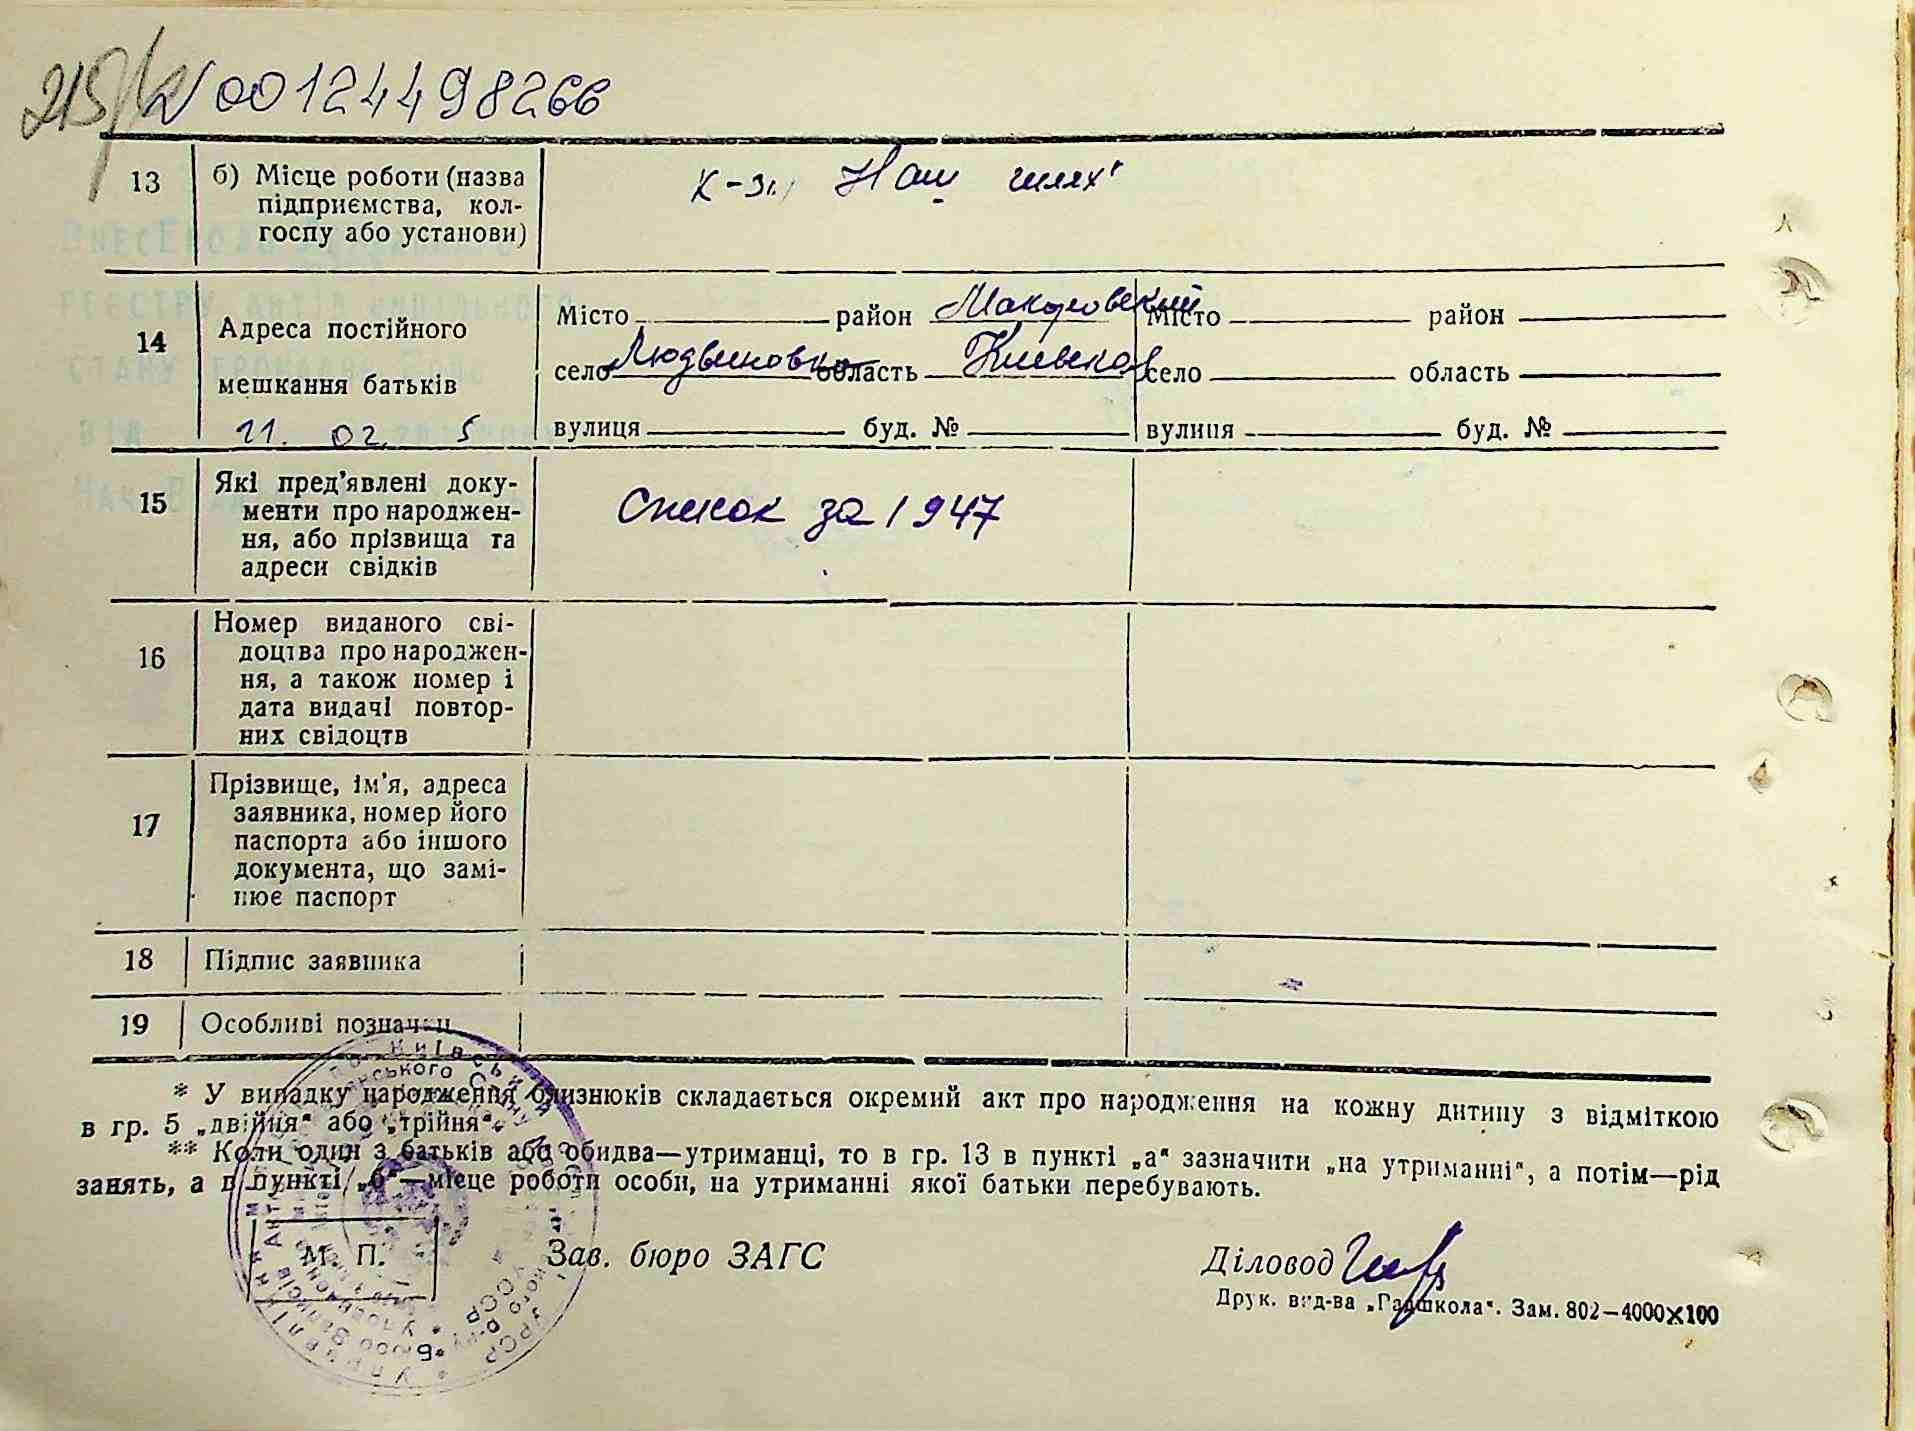 215/2 00124498266
13 б) Місце роботи (назва
підприємства, кол-
госпу або установи)
к-зі „Наш шлях"
14 Адреса постійного
мешкання батьків
11. 02. 5
Місто район Макаровский
село Людвиновка область Киевская
вулиця буд. №
Місто район
село область
вулиця буд. №
15 Які пред'явлені доку-
менти про народжен-
ня, або прізвища та
адреси свідків
Список за 1947
16 Номер виданого сві-
доцтва про народжен-
ня, а також номер і
дата видачі повтор-
них свідоцтв
17 Прізвище, ім'я, адреса
заявника, номер його
паспорта або іншого
документа, що замі-
нює паспорт
18 Підпис заявника
19 Особливі позначки
* У випадку народження близнюків складається окремий акт про народження на кожну дитину з відміткою
в гр. 5 „двійня" або „трійня".
** Коли один з батьків або обидва—утриманці, то в гр. 13 в пункті „а" зазначити „на утриманні", а потім—рід
занять, а в пункті „б"—місце роботи особи, на утриманні якої батьки перебувають.
М. П. Зав. бюро ЗАГС Діловод
Друк. вид-ва „Радшкола". Зам. 802—4000×100